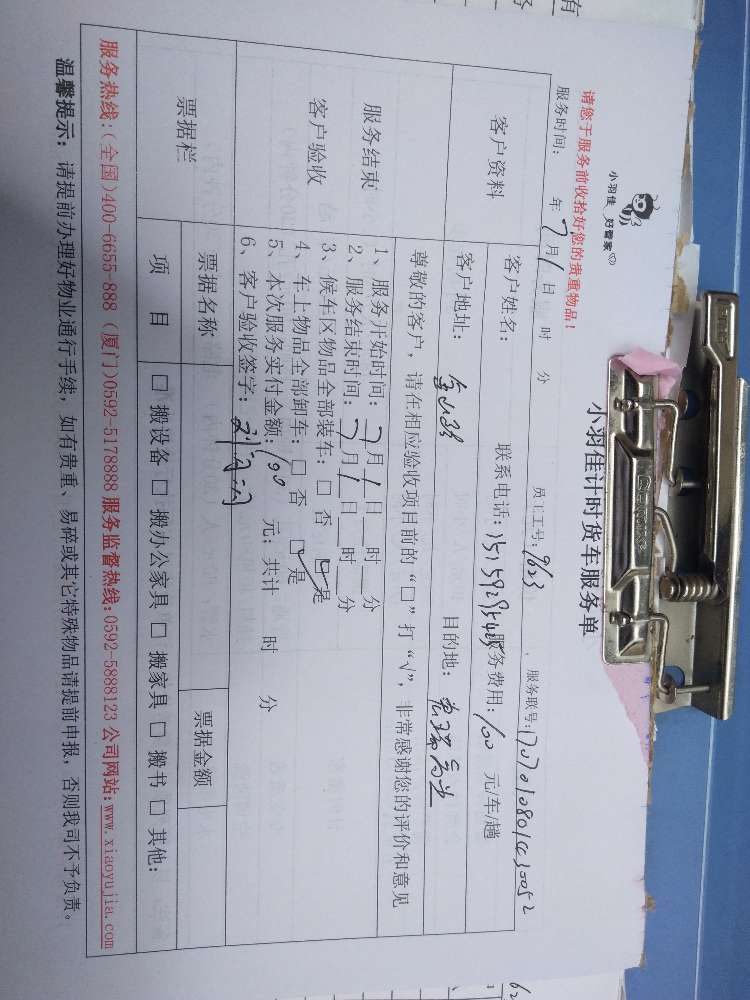 小羽佳 好管家
小羽佳计时货车服务单
请您于服务前收拾好您的贵重物品!
服务时间: 年7月1日 时 分 员工工号:9623 服务联号:
客户资料
客户姓名: 联系电话: 服务费用:100 元/车/趟
客户地址: 金山路 目的地:
服务结束
客户验收
尊敬的客户,请在相应验收项目前的“□”打“√”,非常感谢您的评价和意见
1、服务开始时间:7月1日 时 分
2、服务结束时间:7月1日 时 分
3、候车区物品全部装车:□ 否 ☑ 是
4、车上物品全部卸车:□ 否 □ 是
5、本次服务实付金额:100 元;共计 时 分
6、客户验收签字:
票据栏
票据名称 票据金额
项 目 □ 搬设备 □ 搬办公家具 □ 搬家具 □ 搬书 □ 其他:
服务热线:(全国)400-6655-888 (厦门)0592-5178888 服务监督热线:0592-5888123 公司网站:www.xiaoyujia.com
温馨提示:请提前办理好物业通行手续,如有贵重、易碎或其它特殊物品请提前申报,否则我司不予负责。